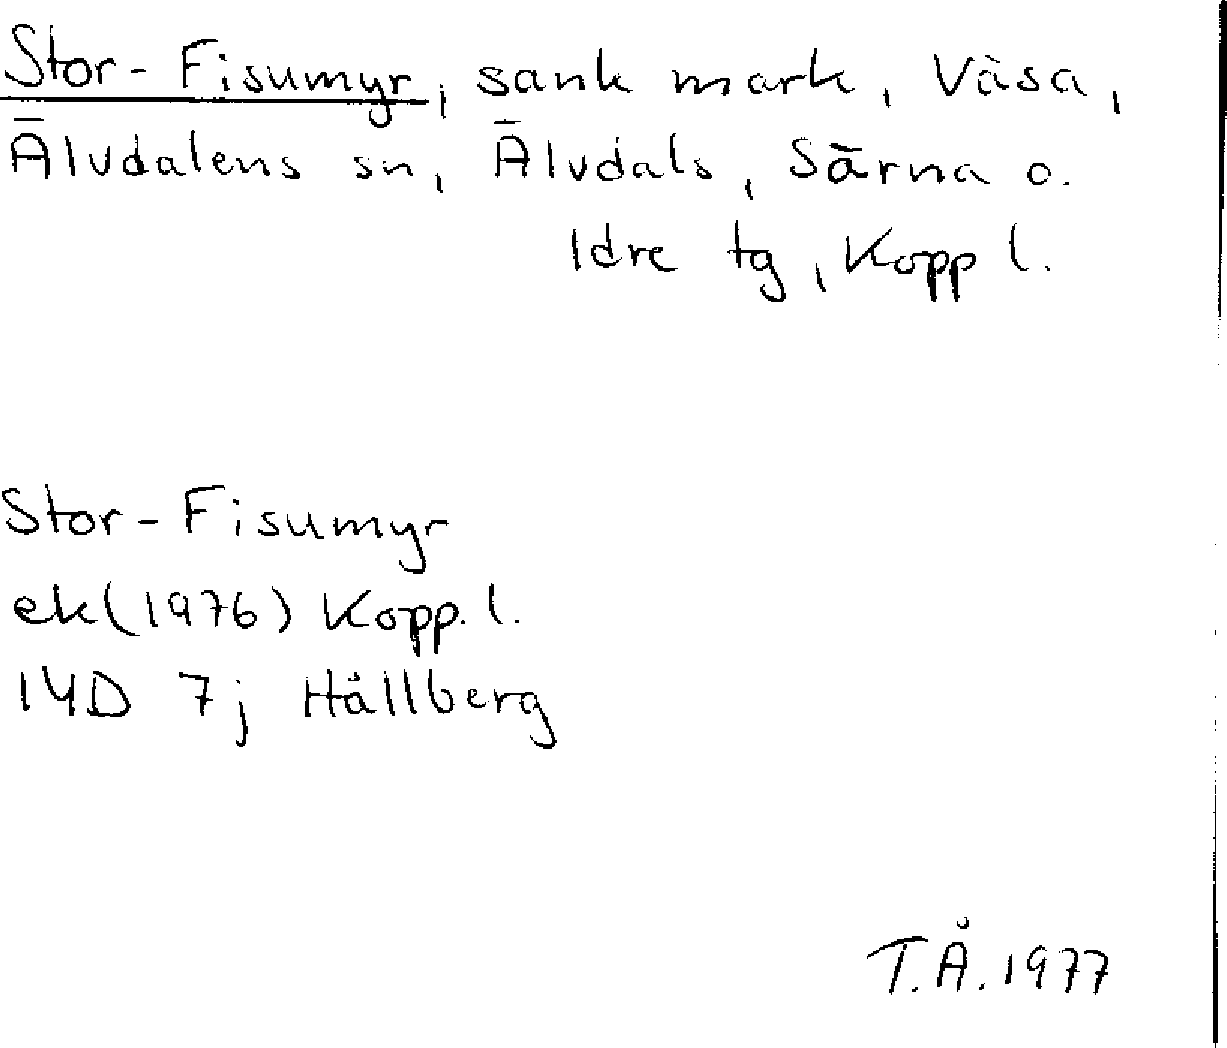 Stor-Fisumyr, sank mark, Väsa,
Älvdalens sn, Älvdals, Särna o.
Idre tg, Kopp l.
Stor-Fisumyr
ek(1976) Kopp. l.
14D 7j Hållberg
T.Å. 1977